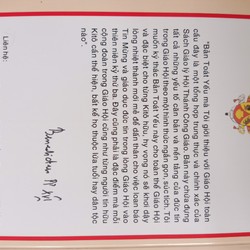 "Bản Toát Yếu mà Tôi giới thiệu với Giáo Hội toàn
cầu đây là một tổng hợp trung thực và chính xác của
Sách Giáo lý Hội Thánh Công Giáo. Bản này chứa đựng
tất cả những yếu tố căn bản và nền tảng của đức tin
trong Giáo Hội theo một hình thức ngắn gọn, súc tích. Tôi
muốn ký thác Bản Toát Yếu này cho toàn thể Giáo Hội
và đặc biệt cho từng Kitô hữu, hy vọng nó sẽ khơi dậy
lòng nhiệt thành mới mẻ để dấn thân cho việc loan báo
Tin Mừng và giáo dục đức tin trong lòng Giáo Hội vào
thiên niên kỷ thứ ba. Đây cũng phải là đặc điểm mà mỗi
cộng đoàn trong Giáo Hội cũng như từng người tín hữu
Kitô cần thể hiện, bất kể họ thuộc lứa tuổi hay dân tộc
nào".
Benedictus PP XVI
Liên hệ: